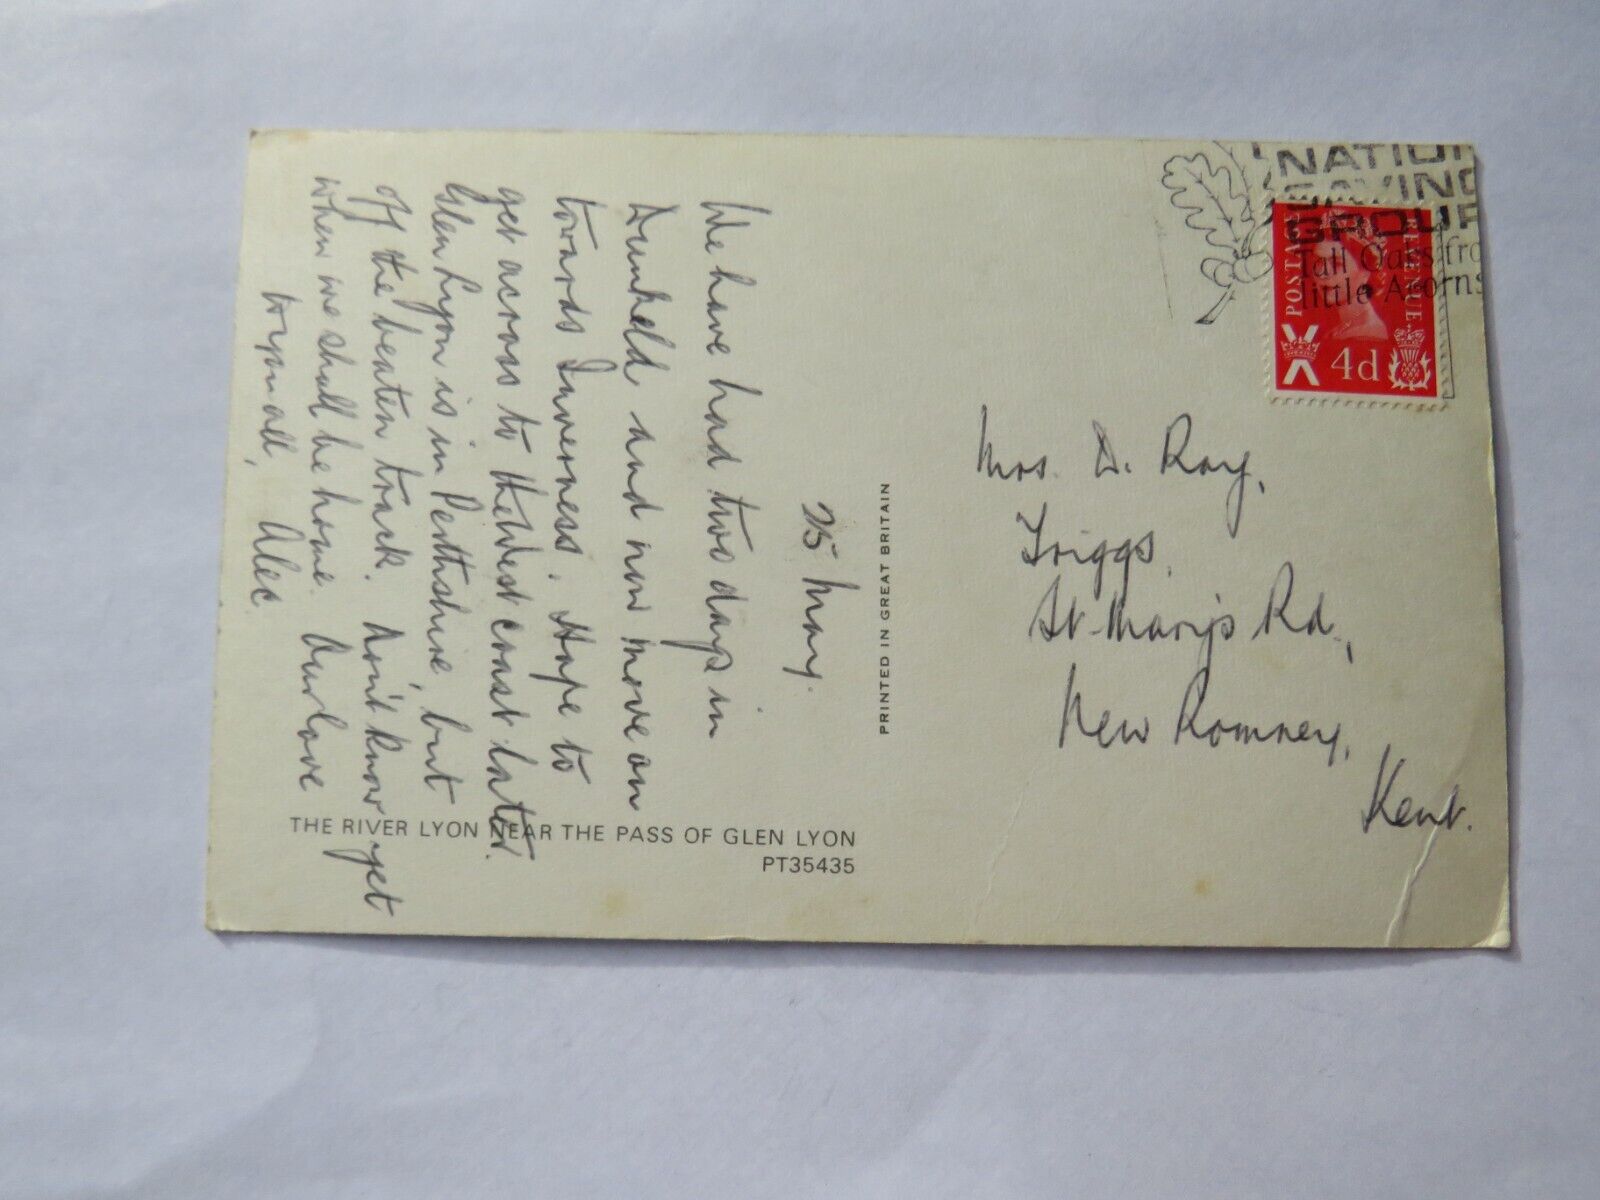 25 May.
We have had two days in
Dunkeld and now move on
towards Inverness. Hope to
get across to the West coast later.
Glen Lyon is in Perthshire, but
off the beaten track. Don't know yet
when we shall be home. Our love
to you all, Alec
THE RIVER LYON NEAR THE PASS OF GLEN LYON
PT35435
PRINTED IN GREAT BRITAIN
NATION
SAVING
GROUP
Tall Oaks fro
little Acorns
POSTAGE
REVENUE
4d
Mrs. D. Ray,
Triggs,
St. Mary's Rd,
New Romney,
Kent.